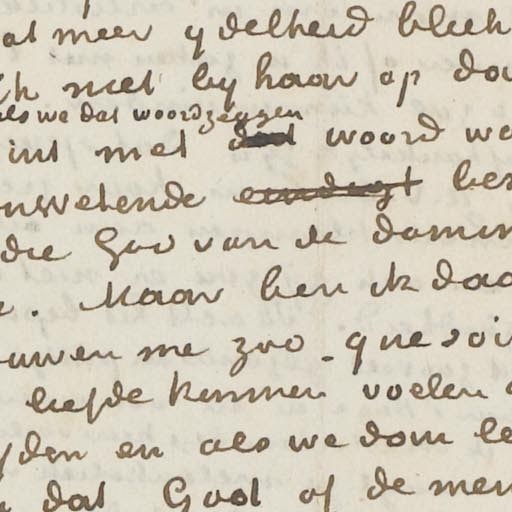 at meer ydelheid bleek
ik met by haar op do
als we dat woord zeggen
int met dat woord we
nwetende eindigt bes
die God van de domin
. Maar ben ik daa
uwen me zoo – que soi
liefde kunnen voelen
yden en als we dom le
dat God of de men